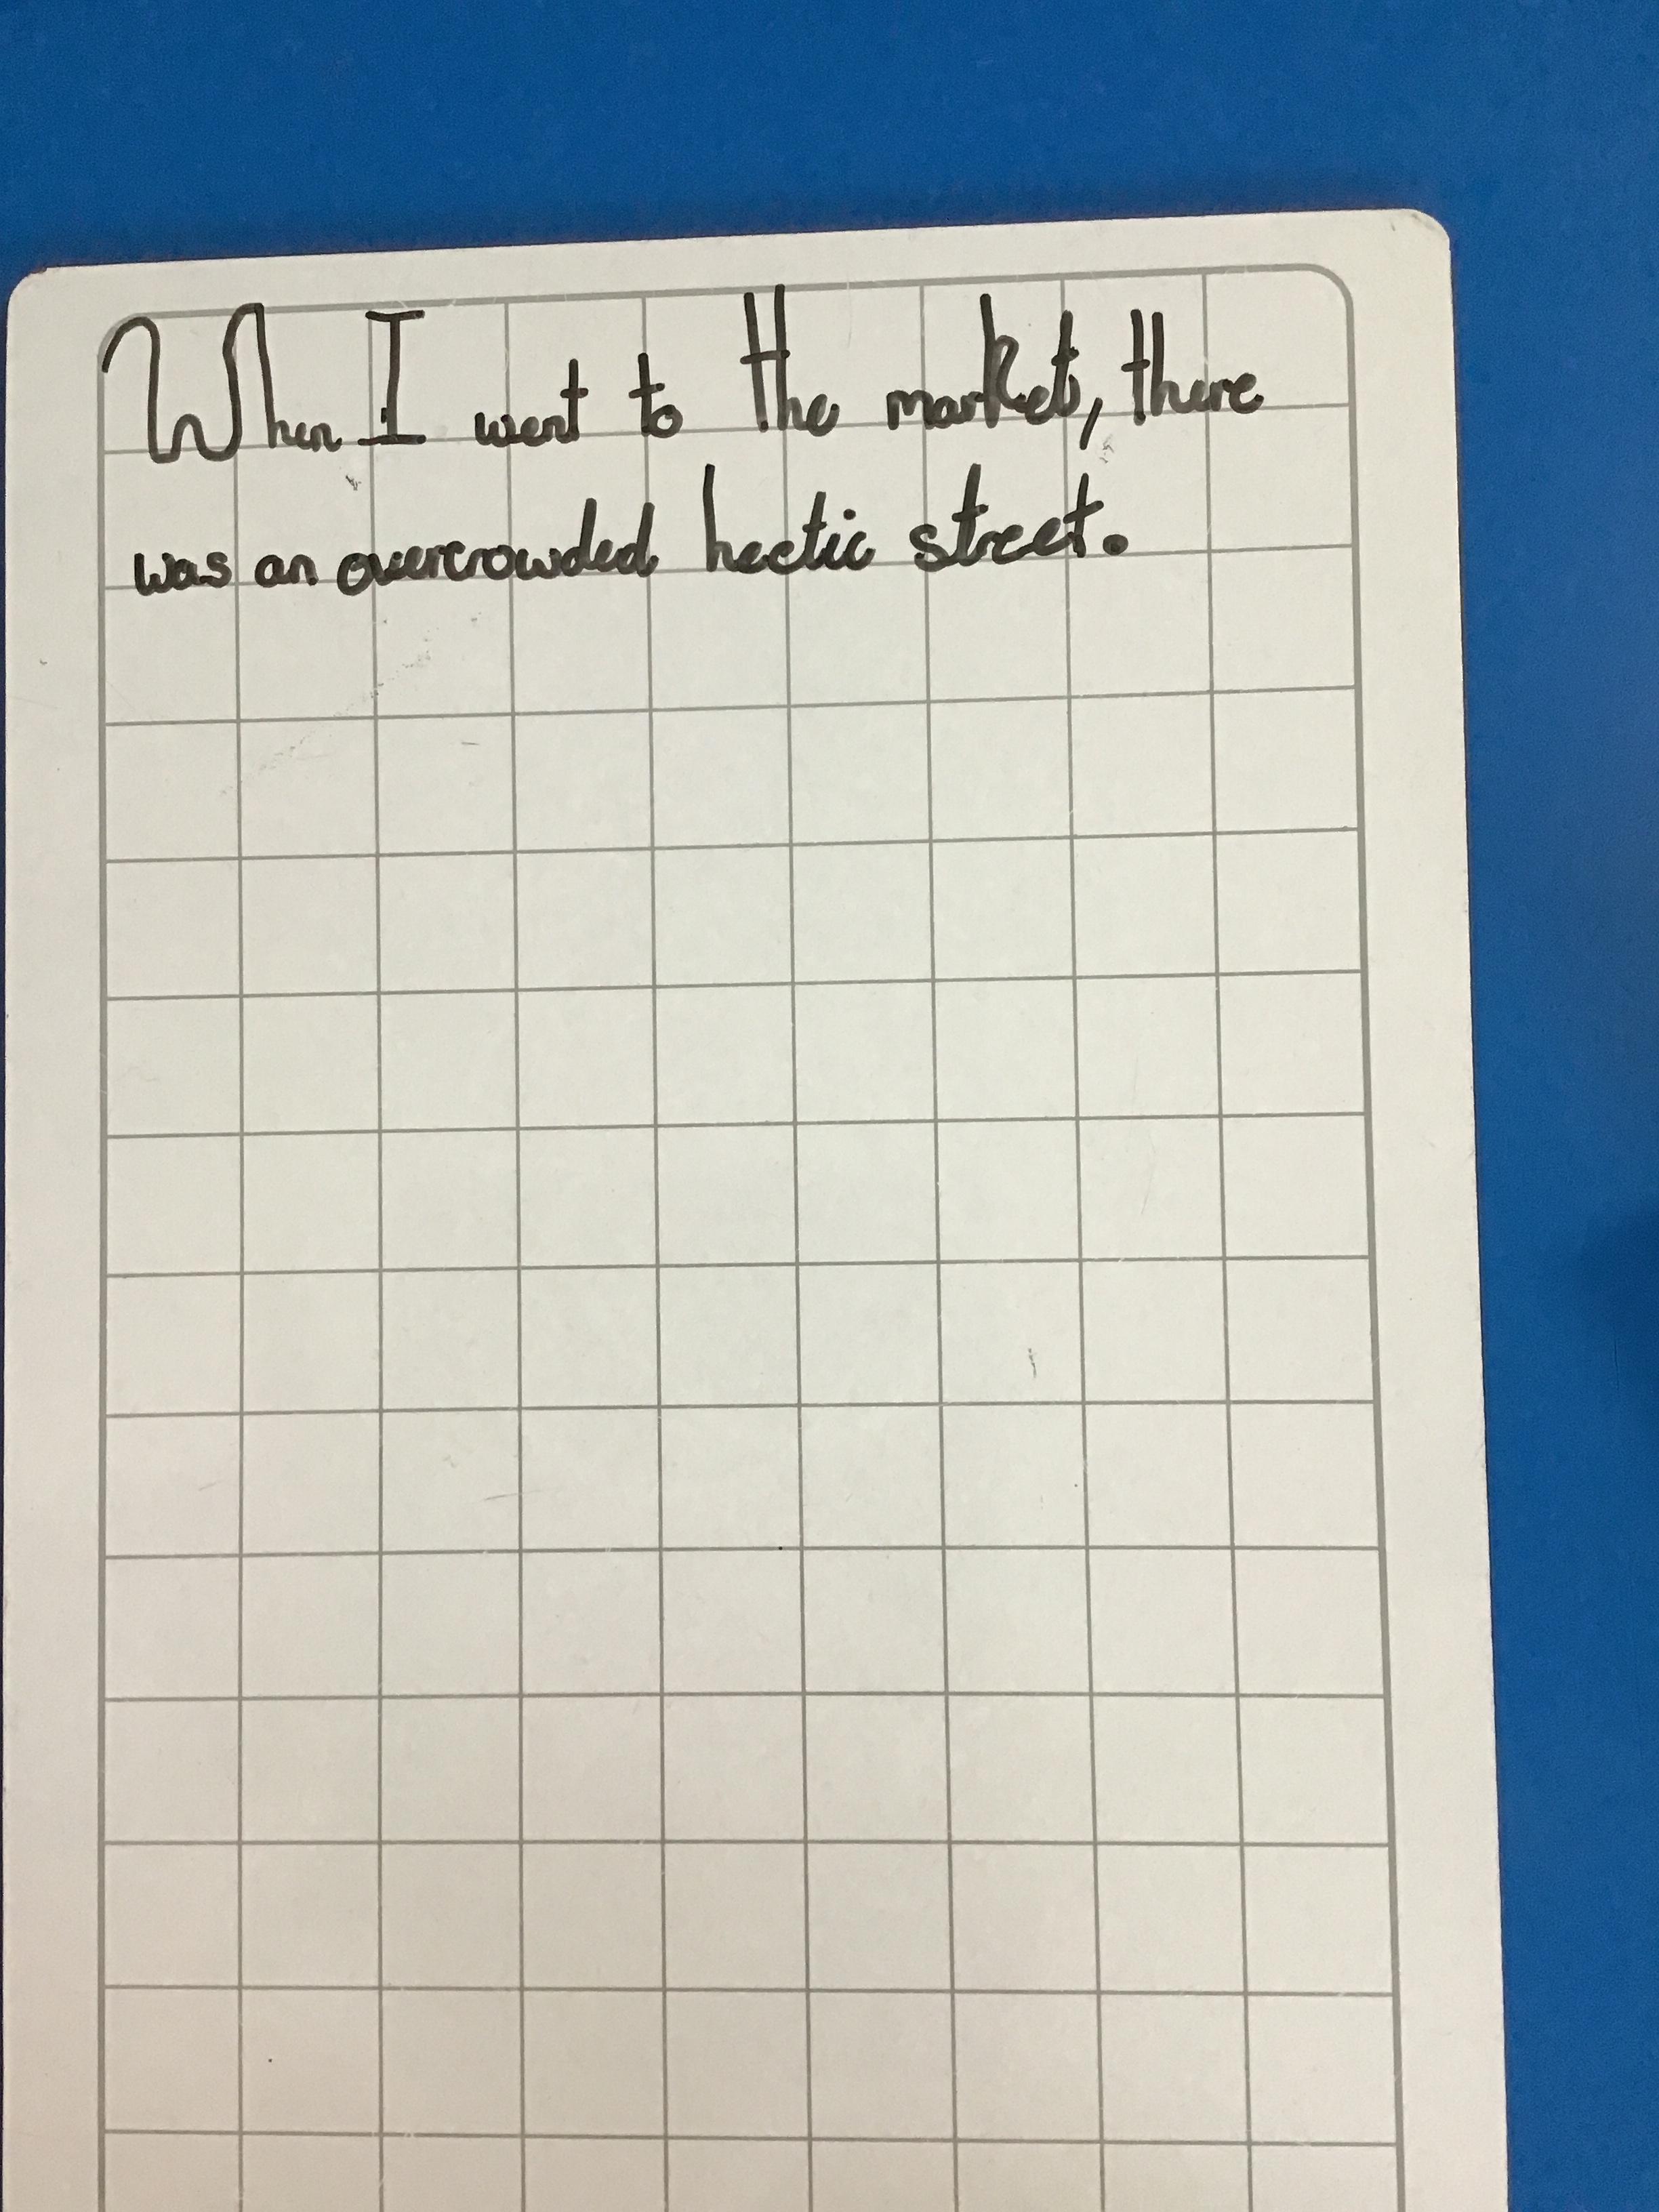 When I went to the market, there
was an overcrowded hectic street.